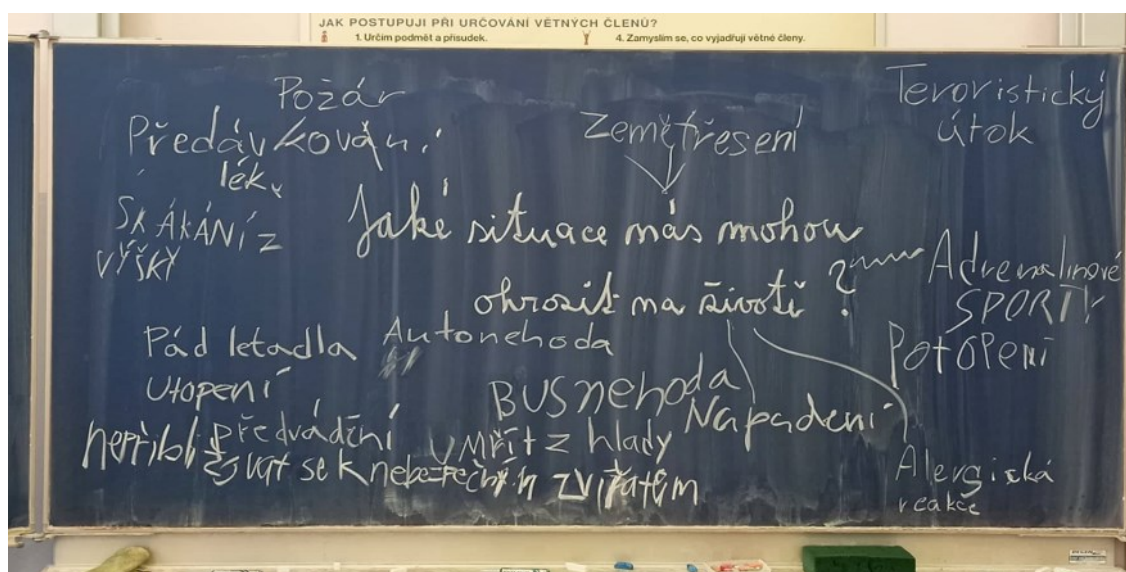 JAK POSTUPUJI PŘI URČOVÁNÍ VĚTNÝCH ČLENŮ?
1. Určím podmět a přísudek.
4. Zamyslím se, co vyjadřují větné členy.
Požár
Předávkování
lék
Zemětřesení
Teroristický
útok
SKÁKÁNÍ Z
VÝŠKY
Jaké situace nás mohou
ohrozit na životě ?
Adrenalinové
SPORTY
Pád letadla
Autonehoda
POTOPENÍ
Utopení
BUSnehoda
Napadení
předvádění
UMŘÍT z hlady
nepřibližovat se k nebezpečným zvířatům
Alergická
reakce